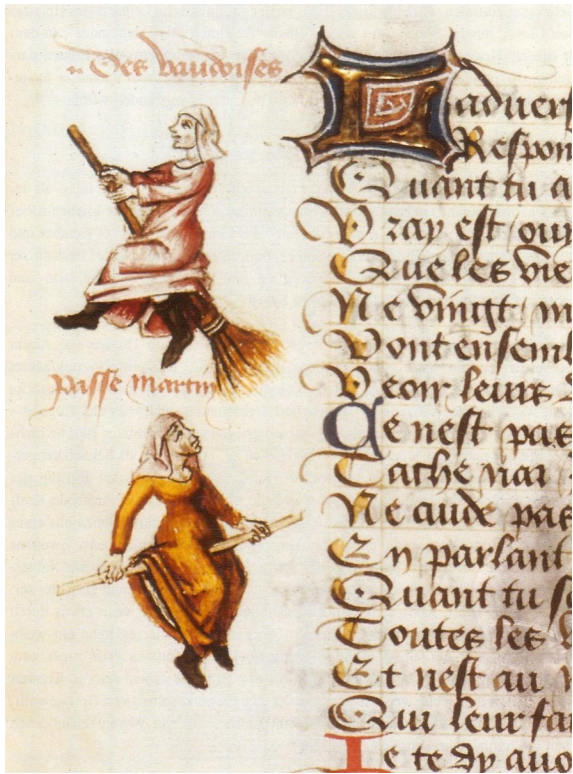 Des vaudoises
passe martin
Ladvers
Respon
Quant tu a
Vray est ouy
Que les vie
Ne vingt m
Vont ensembl
Veoir leurs
Ce nest pas
Tache par
Ne cuide pas
En parlant
Quant tu so
Toutes les v
Et nest au
Qui leur fa
Ie te dy auo